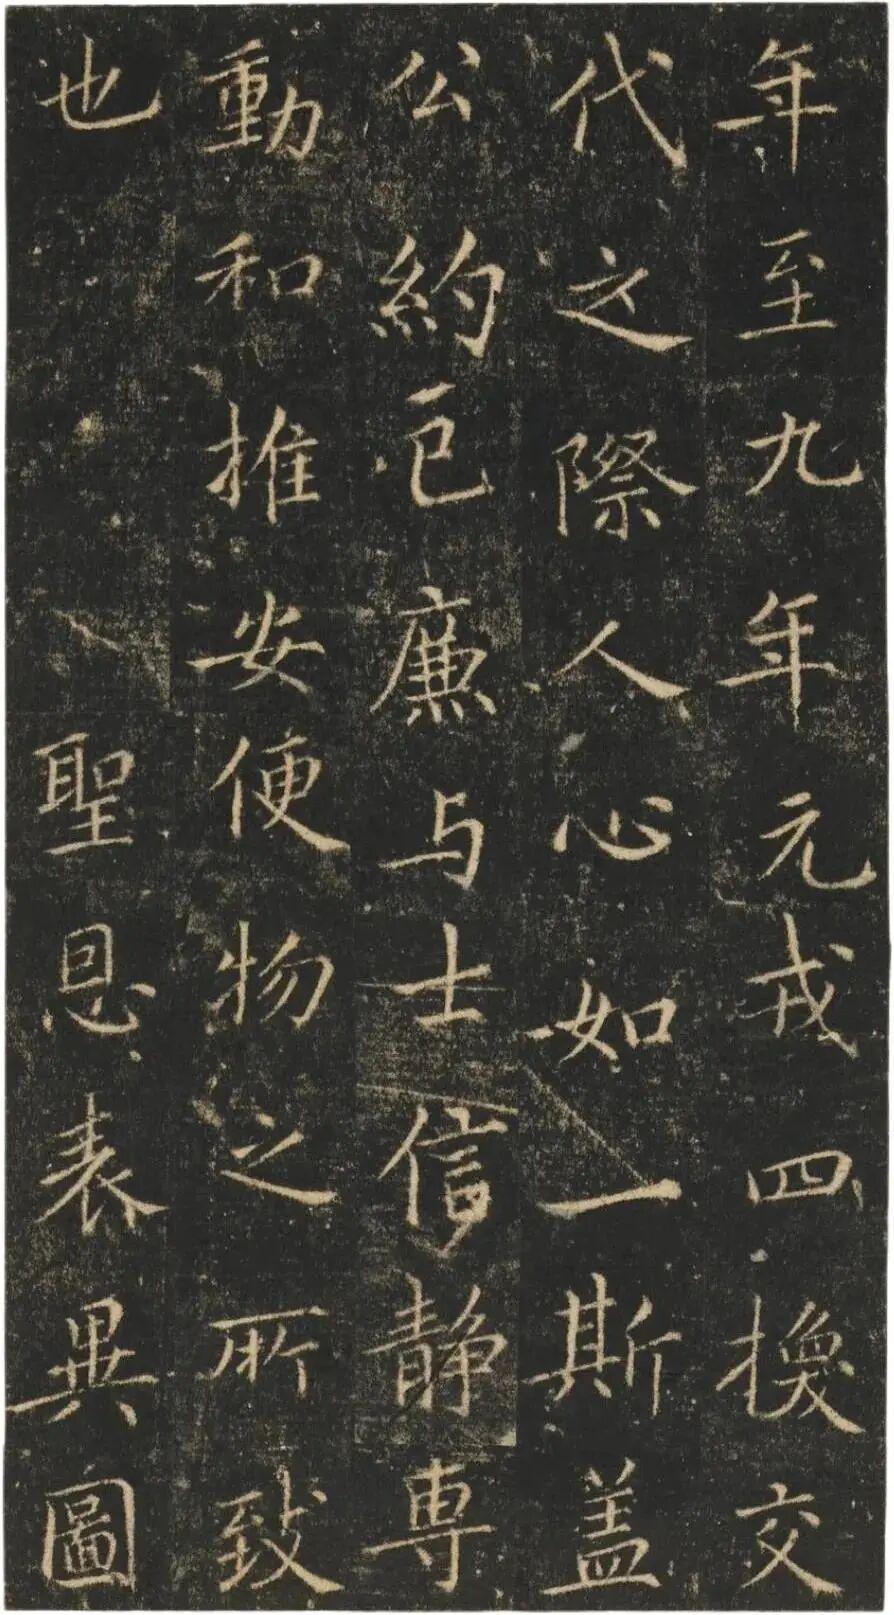 年至九年元戎四換交
代之際人心如一斯盖
公約己廉与士信静専
動和推安便物之所致
也 聖恩表異圖